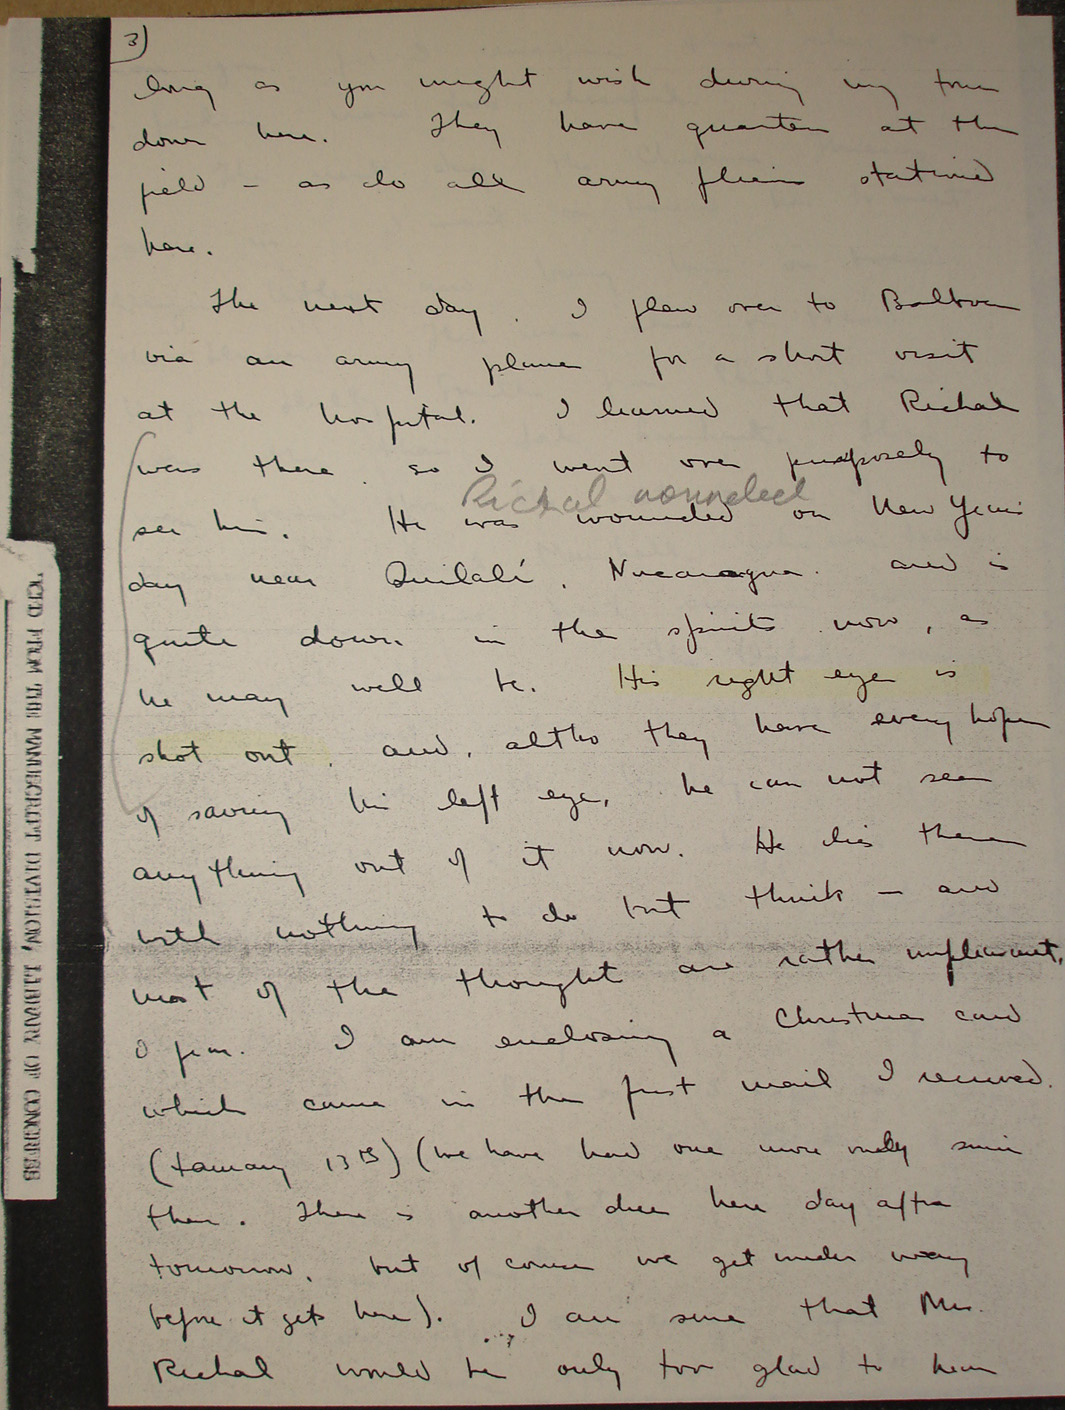 3)
long as you might wish during my tour
down here. They have quarters at the
field – as do all army fliers stationed
here.
The next day, I flew over to Balboa
via an army plane for a short visit
at the hospital. I learned that Richal
was there so I went over purposely to
Richal wounded
see him. He was wounded on New Years
day near Quilalí, Nicaragua. and is
quite down in the spirits now, as
he may well be. His right eye is
shot out, and, altho they have every hope
of saving his left eye, he can not see
anything out of it now. He lies there
with nothing to do but think – and
most of the thought are rather unpleasant,
I fear. I am enclosing a Christmas card
which came in the first mail I received.
(January 13th) (We have had one more only since
then. There is another due here day after
tomorrow, but of course we get under way
before it gets here). I am sure that Mrs.
Richal would be only too glad to hear
'ICED FROM THE MANUSCRIPT DIVISION, LIBRARY OF CONGRESS